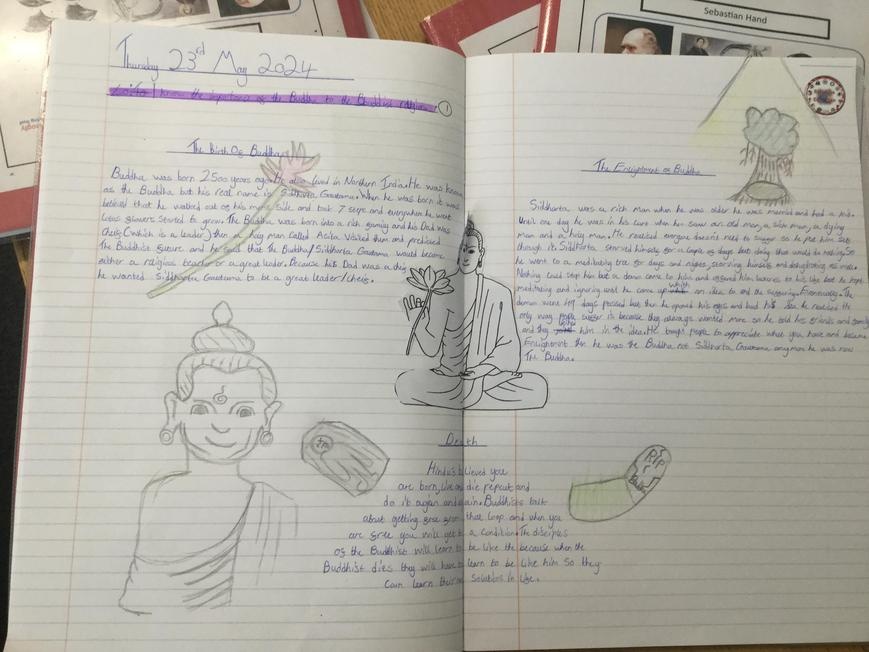 Sebastian Hand
Thursday 23rd May 2024
I know the importance of the Buddha to the Buddhist religion 1
The Birth Of Buddha
Buddha was born 2500 years ago. He also lived in Northern India. He was known
as the Buddha but his real name is Siddharta Gautama. When he was born it was
belived that he walked out of his mums side and took 7 steps and everywhere he went
lotus flowers started to grow. The Buddha was born into a rich family and his Dad was
cheif (which is a leader) then a holy man called Acita visited them and prediced
The Buddhist future and he said that the Buddha/Siddharta Gautama would become
either a religious teacher or a great leader. Because his Dad was a cheif
he wanted Siddharta Gautama to be a great leader/cheif.
The Enlightment of Buddha
Siddharta was a rich man when he was older he was married and had a kid.
Until one day he was in his cart when he saw an old man, a sick man, a dying
man and a holy man. He realised everyone doesn't need to suffer so he put him self
through it. Siddharta starved himself for a couple of days but doing that would do nothing. So
he went to a meditating tree for days and nights, starving himself and dehydrating as well.
Nothing could stop him but a demon came to him and offered him luxuries to his life but he kept
meditating and ignoring until he came up which an idea to end the suffering. Eventually the
demon went 49 days passed but then he opened his eyes and had his idea he realised the
only way people suffer is because they always wanted more so he told his friends and family
and they joined him in the idea. He taught people to appreciate what you have and became
Enlightment then he was the Buddha not Siddharta Gautama anymore he was now
The Buddha.
Death
Hindu's believed you
are born, live and die repeat and
do it again and again. Buddhists talk
about getting free from that loop and when you
are free you will get to a condition. The disciples
of the Buddhist will learn to be like the because when the
Buddhist dies they will have to learn to be like him so they
can learn their own solutions in life.
RIP
Buddha